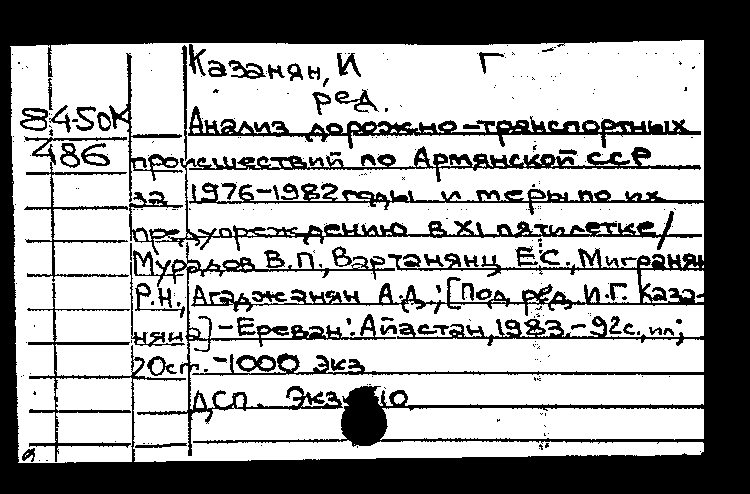 Казанян, И Г
ред.
84-50К Анализ дорожно-транспортных
486 происшествий по Армянской ССР
за 1976-1982 годы и меры по их
предупреждению в XI пятилетке/
Мурадов В.П., Вартанянц Е.С., Мигранян
Р.Н., Агаджанян А.Д.; [Под ред. И.Г. Каза-
няна] - Ереван: Айастан, 1983.-92с., ил;
20см. -1000 экз.
ДСП. Экз. 10